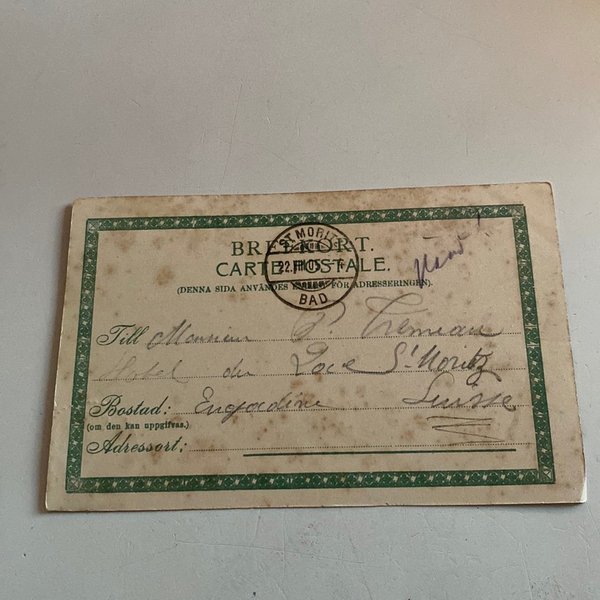 BREFKORT.
CARTE POSTALE.
(DENNA SIDA ANVÄNDES ENDAST FÖR ADRESSERINGEN).
ST MORITZ
22.VIII.05.
BAD
Till Monsieur P.
Hotel du Lac St Moritz
Bostad: Engadine Suisse
(om den kan uppgifvas.)
Adressort: